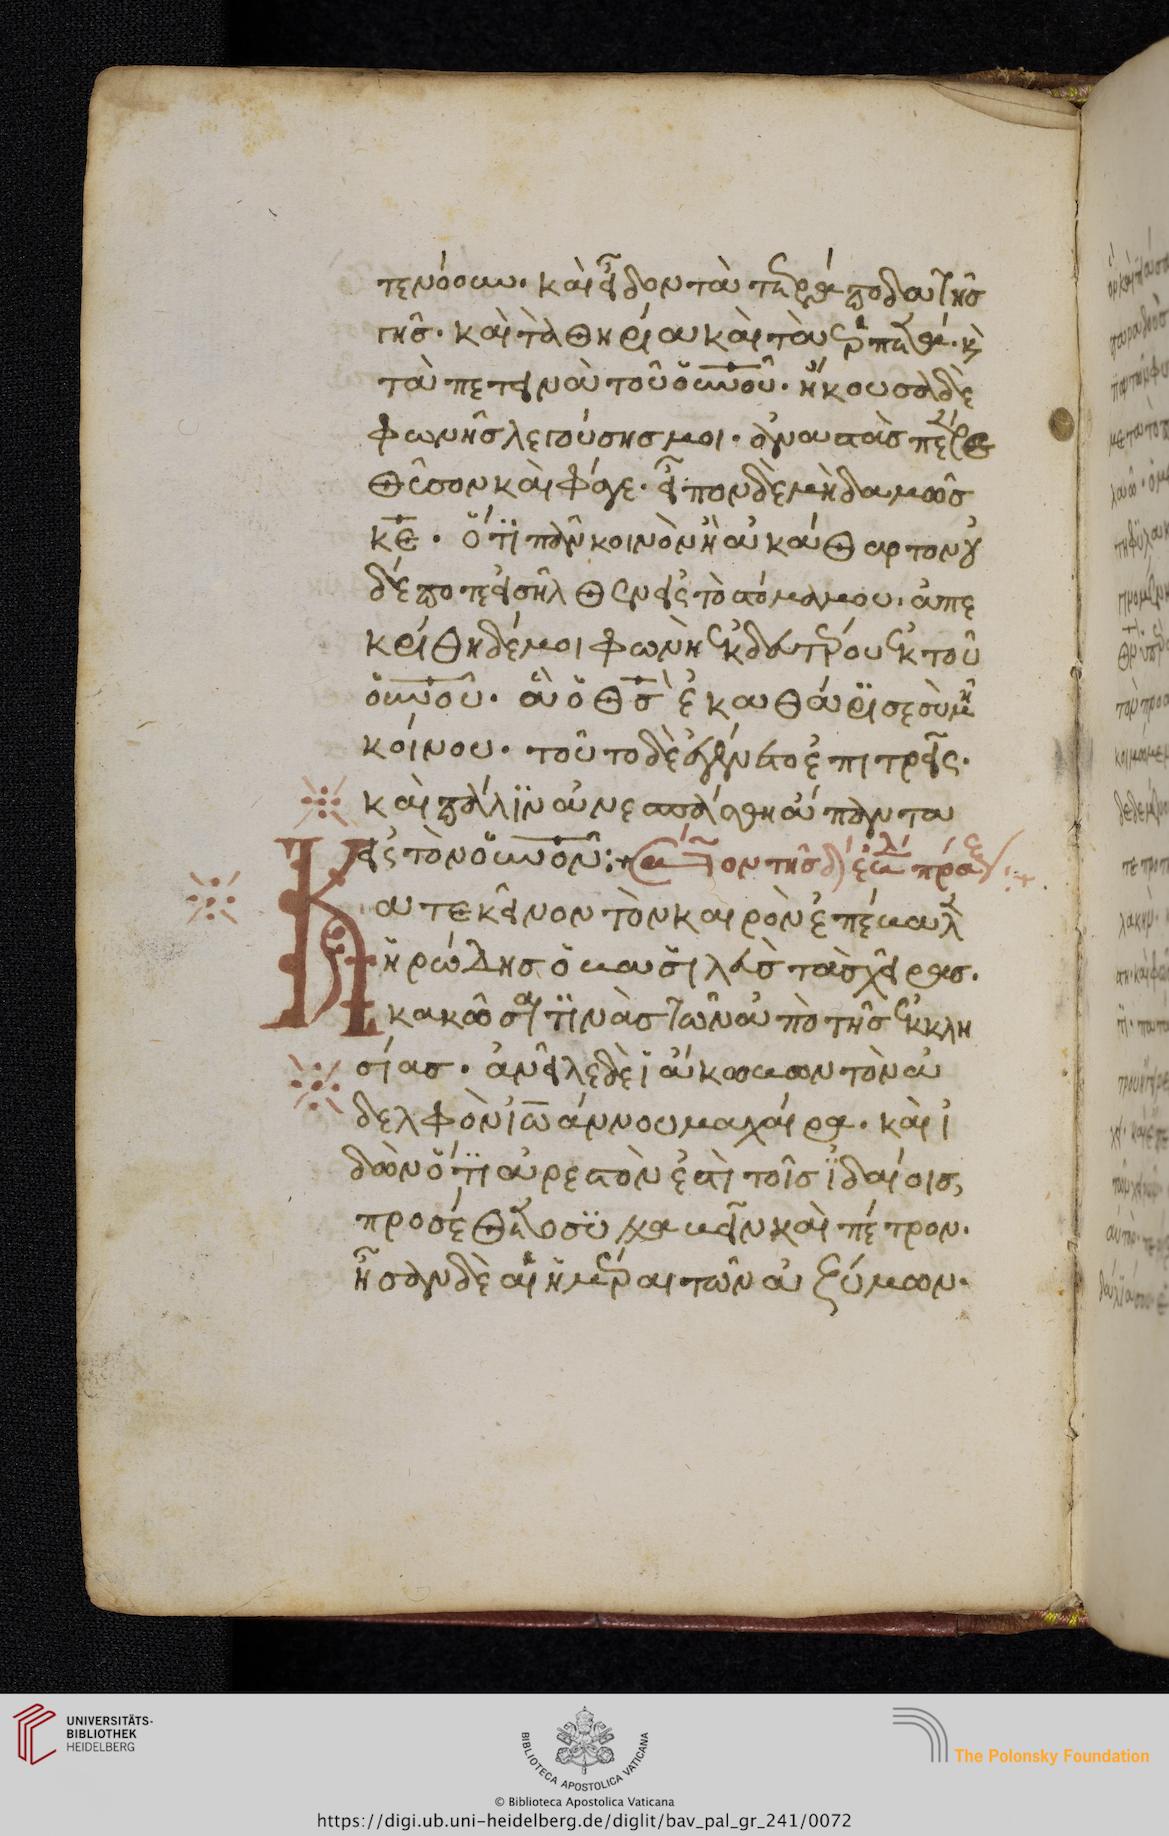 τενόουν· καὶ εἶδον τὰ τετράποδα τῆς
γῆς· καὶ τὰ θηρία καὶ τὰ ἑρπετά· κ(αὶ)
τὰ πετεινὰ τοῦ οὐνοῦ· ἤκουσα δὲ
φωνῆς λεγούσης μοι· ἀναστὰς πέτρε
θῦσον καὶ φάγε· εἶπον δὲ μηδαμῶς
κε· ὅτι πᾶν κοινὸν ἢ ἀκάθαρτον οὐ
δέποτε εἰσῆλθεν εἰς τὸ στόμα μου· ἀπε
κρίθη δέ μοι φωνὴ ἐκ δευτέρου ἐκ τοῦ
οὐνοῦ· ἃ ὁ θς ἐκαθάρισε σὺ μὴ
κοίνου· τοῦτο δὲ ἐγένετο ἐπὶ τρεῖς·
καὶ πάλιν ἀνεσπάσθη ἅπαντα
εἰς τὸν οὐνόν:
Κατ ἐκεῖνον τὸν καιρὸν ἐπέβαλ
ἡρώδης ὁ βασιλεὺς τὰς χεῖρας·
κακῶσαι τινὰς τῶν ἀπὸ τῆς ἐκκλη
σίας· ἀνεῖλε δὲ ἰάκωβον τὸν ἀ
δελφὸν ἰωάννου μαχαίρα· καὶ ἰ
δὼν ὅτι ἀρεστὸν ἐστὶ τοῖς ἰδαίοις,
προσέθετο συλλαβεῖν καὶ πέτρον·
ἦσαν δὲ αἱ ἡμέραι τῶν ἀξύμων·
UNIVERSITÄTS-
BIBLIOTHEK
HEIDELBERG
BIBLIOTECA APOSTOLICA VATICANA
The Polonsky Foundation
© Biblioteca Apostolica Vaticana
https://digi.ub.uni-heidelberg.de/diglit/bav_pal_gr_241/0072